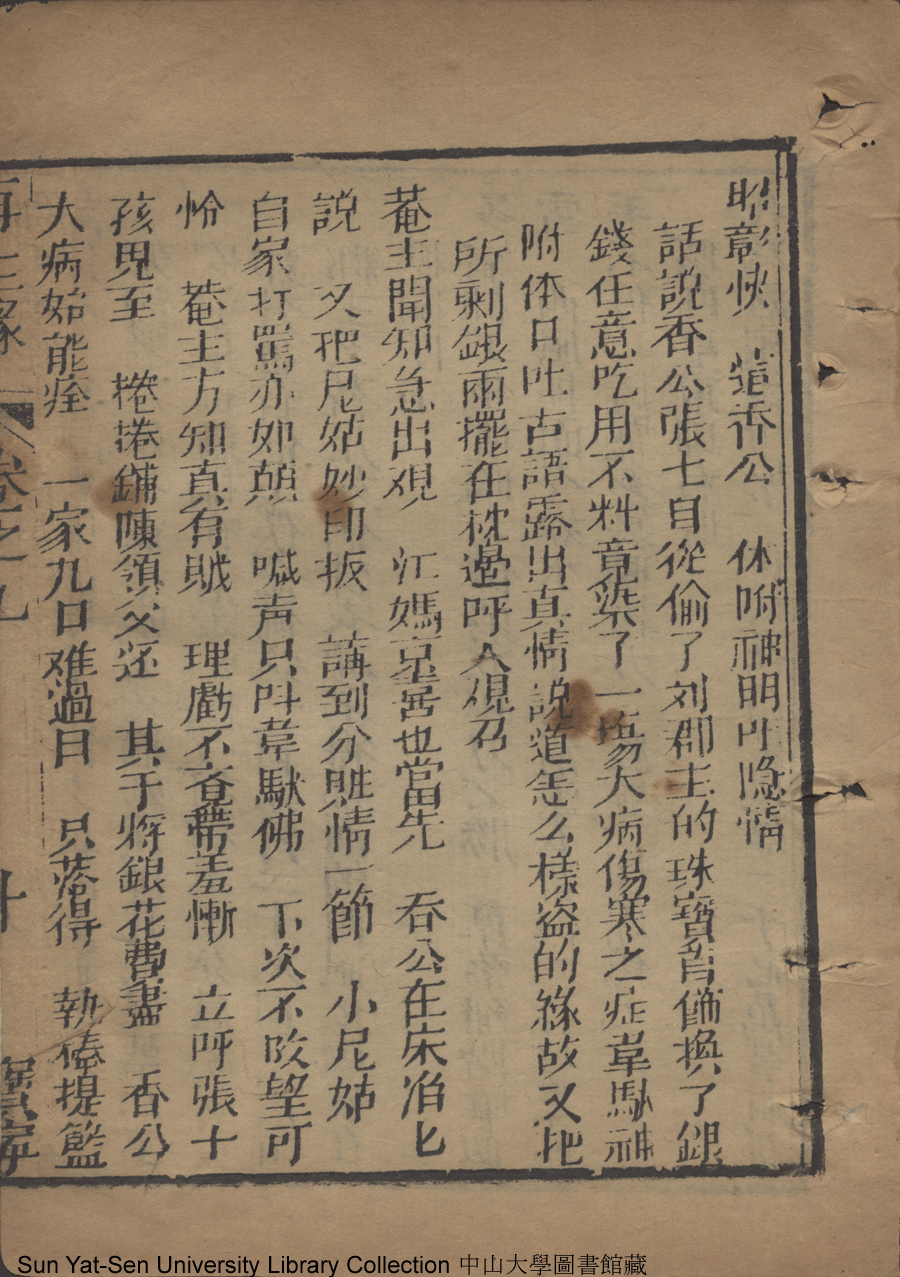 昭彰快　道香公　休附神明吐隐情
話說香公張七自從偷了刘郡主的珠寶首餙換了銀
錢任意吃用不料竟染了一塲大病傷寒之症韋馱神
附体口吐古語露出真情説道怎么樣盗的緣故又把
所剩銀兩擺在枕邊呼人覌召
菴主聞知急出覌　江媽　也當先　香公在床
説　又把尼姑妙印扳　講到分賍情一節　小尼姑
自家打罵亦如顛　喊声只呌韋馱佛　下次不敢望可
怜　菴主方知真有賊　理虧不吝帶羞慚　立呼張十
孩児至　捲捲鋪陳領父还　其子将銀花費盡　香公
大病始能痊　一家九口难過日　只落得　執捧提籃
再生緣　卷之九　十　寳寧
Sun Yat-Sen University Library Collection 中山大學圖書館藏